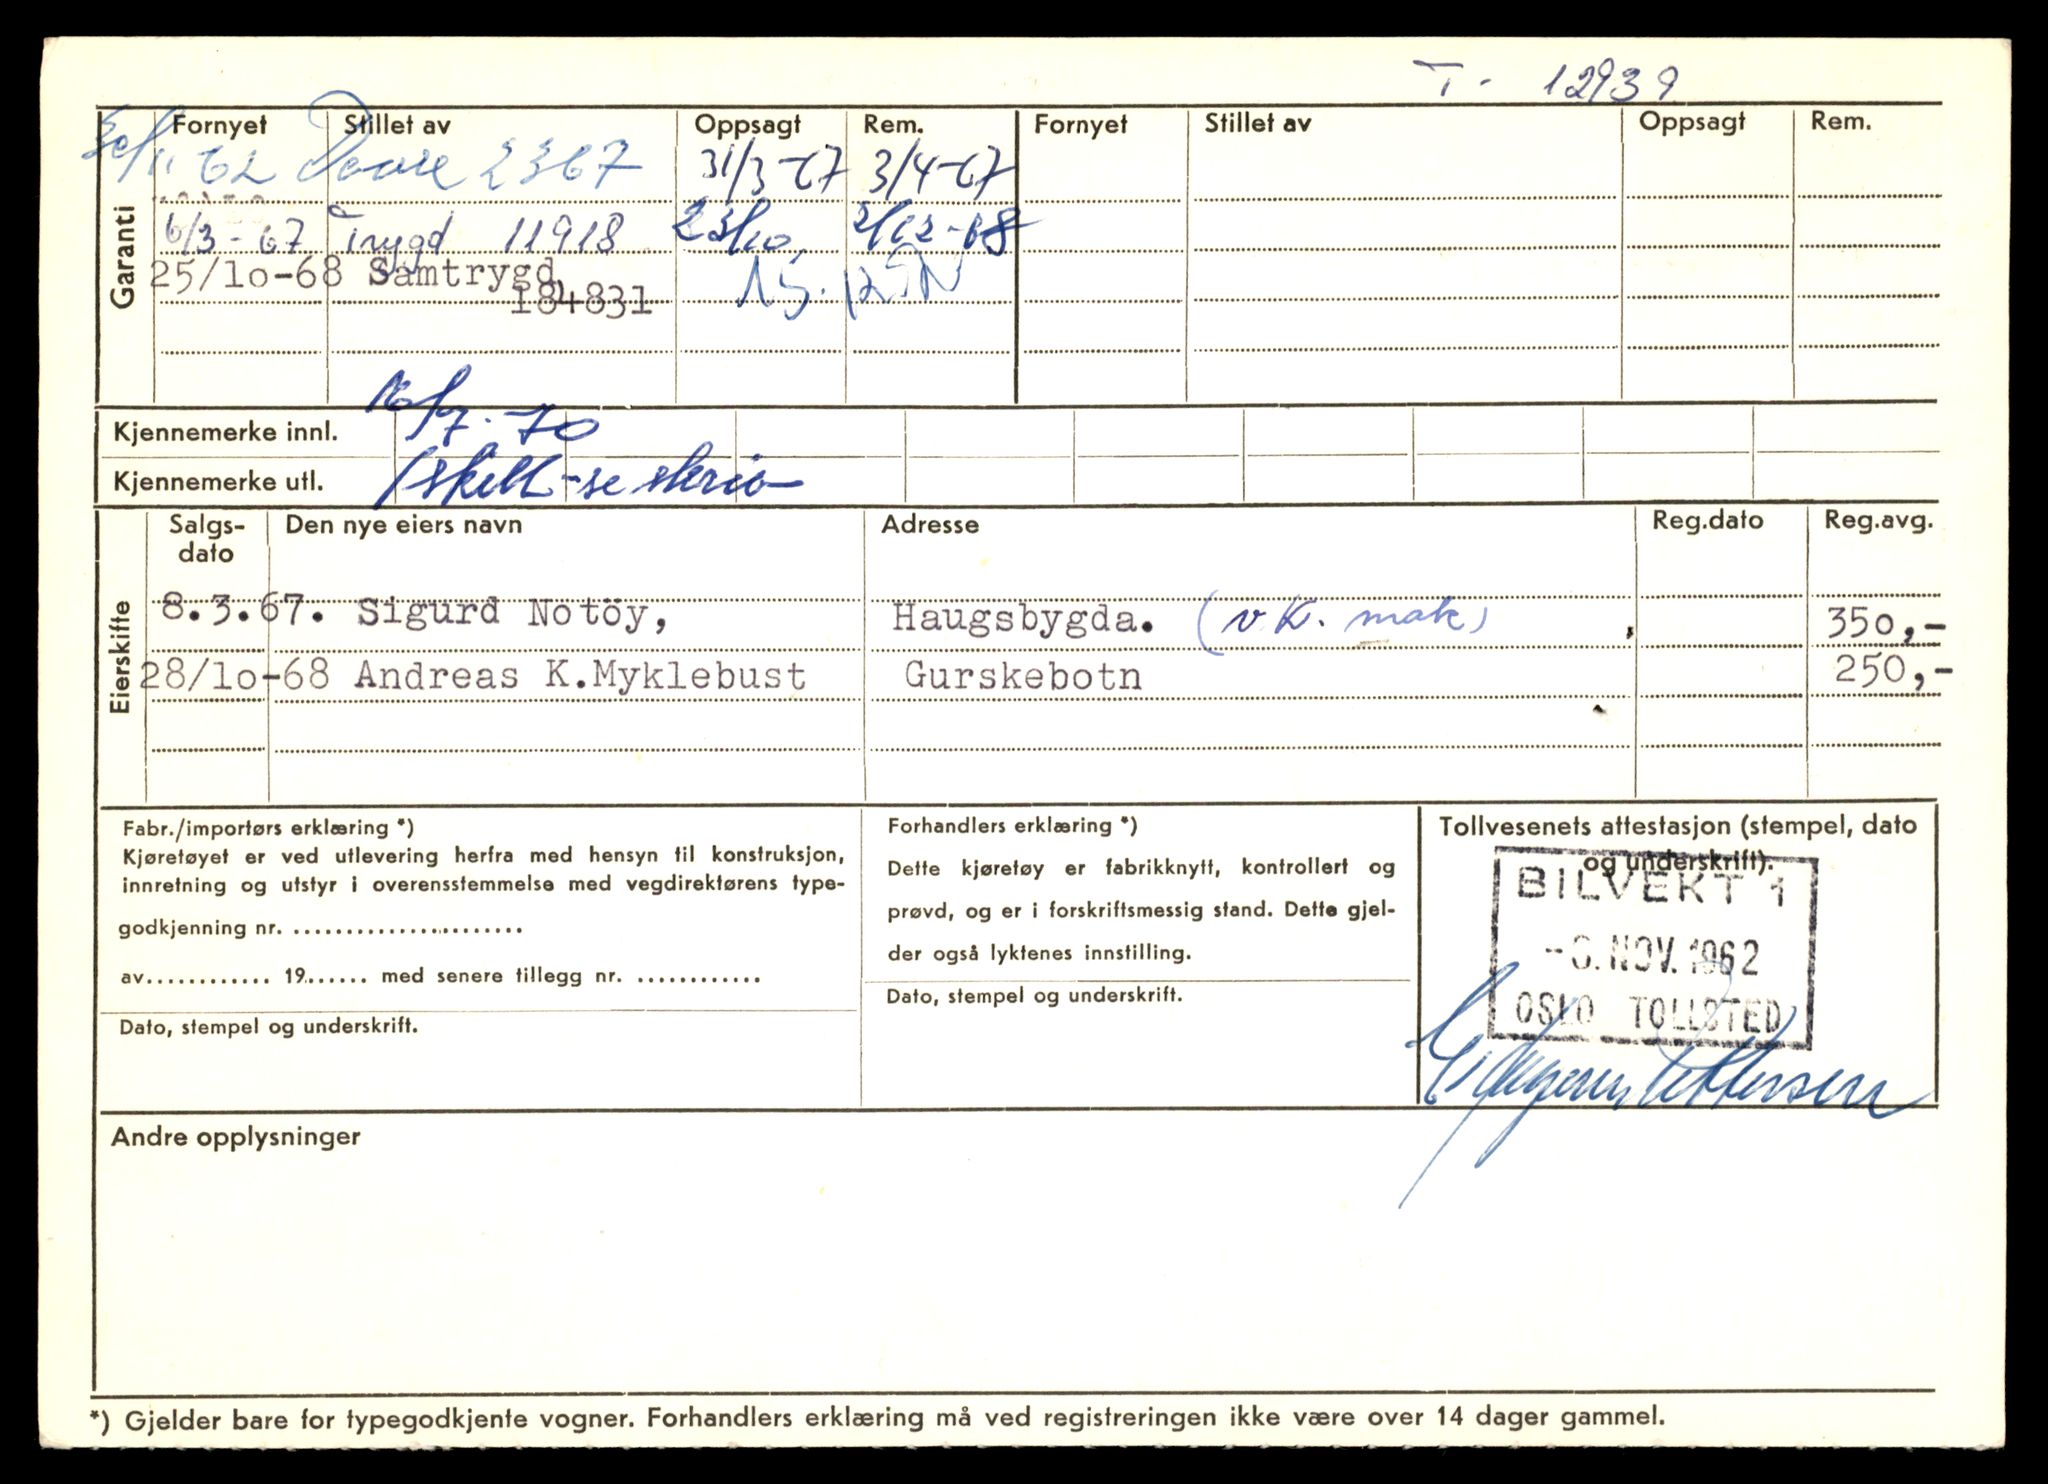 T - 12939
Garanti
Fornyet Stillet av Oppsagt Rem. Fornyet Stillet av Oppsagt Rem.
30/11 62 2367 31/3-67 3/4-67
6/3-67 Trygd 11918 23/10 2/12-68
25/10-68 Samtrygd,
184831
16/7-70
Kjennemerke innl.
Kjennemerke utl.
Eierskifte
Salgs-
dato
Den nye eiers navn Adresse Reg.dato Reg.avg.
8.3.67. Sigurd Notöy, Haugsbygda. (v.K. mak) 350,-
28/10-68 Andreas K.Myklebust Gurskebotn 250,-
Fabr./importørs erklæring *)
Kjøretøyet er ved utlevering herfra med hensyn til konstruksjon,
innretning og utstyr i overensstemmelse med vegdirektørens type-
godkjenning nr. .......................
av............ 19...... med senere tillegg nr. ............
Dato, stempel og underskrift.
Forhandlers erklæring *)
Dette kjøretøy er fabrikknytt, kontrollert og
prøvd, og er i forskriftsmessig stand. Dette gjel-
der også lyktenes innstilling.
Dato, stempel og underskrift.
Tollvesenets attestasjon (stempel, dato
og underskrift).
BILVEKT 1
NOV. 1962
OSLO TOLLSTED
Andre opplysninger
*) Gjelder bare for typegodkjente vogner. Forhandlers erklæring må ved registreringen ikke være over 14 dager gammel.